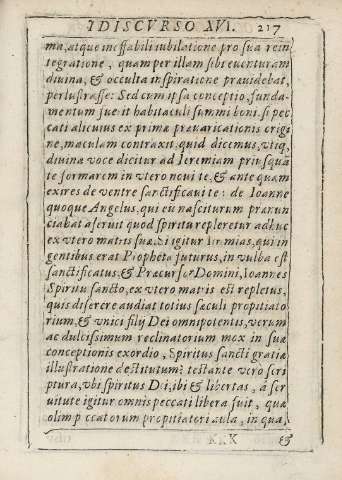 IDISCVRSO XVI. 217
ma, atque ineffabili iubilatione pro sua rein
tegratione, quam per illam sibi euenturam
diuina, & occulta inspiratione præuidebat,
perlustrasse: Sed cum ipsa conceptio, funda-
mentum fuerit habitaculi summi boni, si pec
cati alicuius ex prima præuaricationis origi
ne, maculam contraxit, quid dicemus, vtiq;
diuina voce dicitur ad Ieremiam priusquā
te formarem in vtero noui te, & ante quam
exires de ventre sanctificaui te: de Ioanne
quoque Angelus, qui eū nasciturum prænun
ciabat aseruit quod spiritu repleretur adhuc
ex vtero matris suæ. Si igitur Iermias, qui in
gentibus erat Propheta futurus, in vulba est
sanctificatus, & Præcursor Domini, Ioannes
Spiritu sancto, ex vtero matris est repletus,
quis diserere audiat totius sæculi propitiato
rium, & vnici filij Dei omnipotentis, verum
ac dulcissimum reclinatorium mox in suæ
conceptionis exordio, Spiritus sancti gratiæ
illustratione destitutum: testante vero scri
ptura, vbi spiritus Dei, ibi & libertas, à ser
uitute igitur omnis peccati libera fuit, quæ
olim peccatorum propitiatori aula, in qua,
KKK &